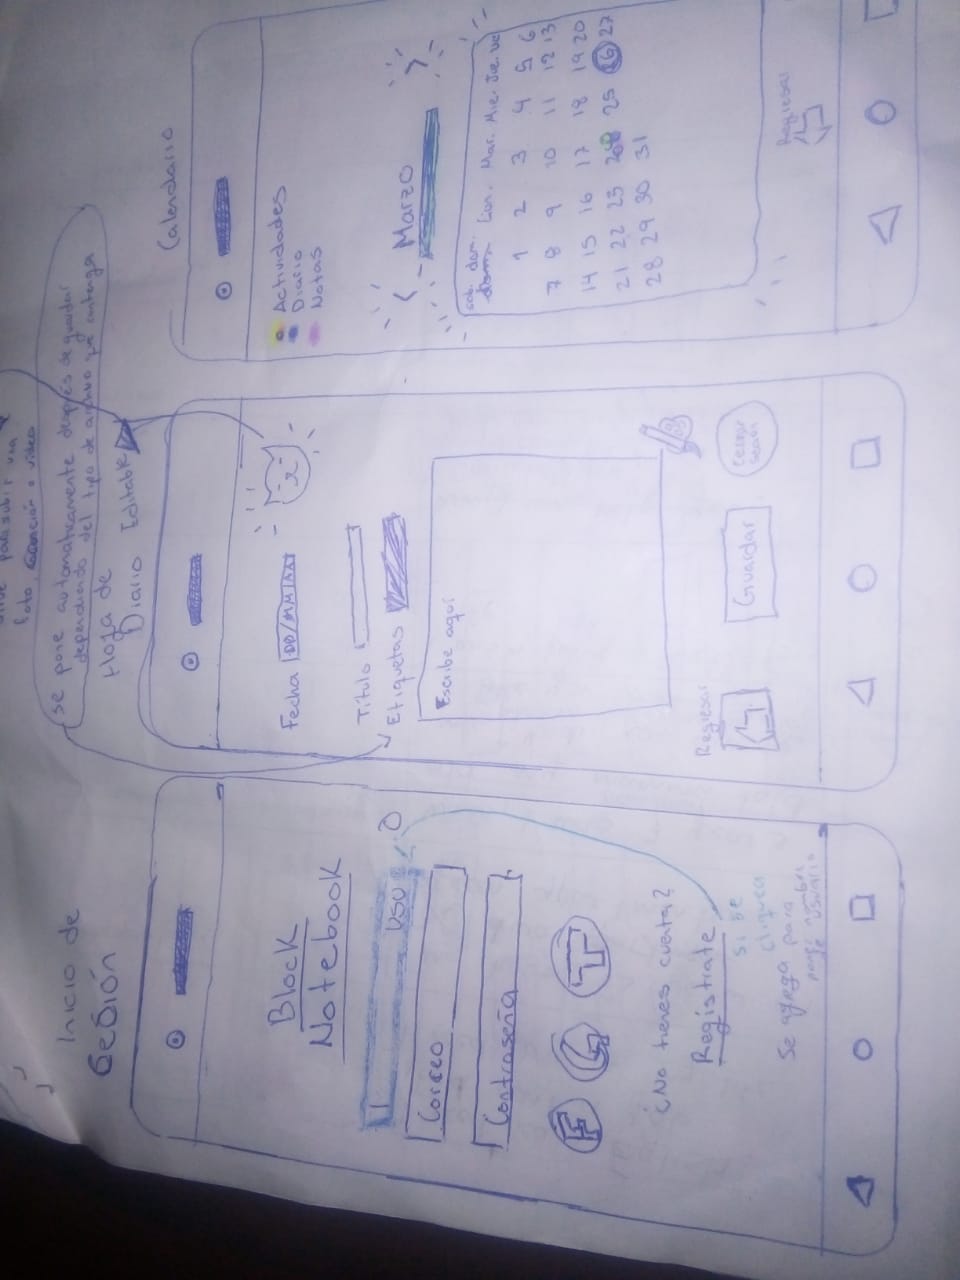 Inicio de
Sesión
Block
Notebook
Usu
Correo
Contraseña
F G T
¿No tienes cuenta?
Registrate
si se
cliquea
se agrega para
nombre
usuario
foto, canción o video
se pone automaticamente después de guardar
dependiendo del tipo de archivo que contenga
Hoja de
Diario Editable
Fecha DD/MM/AA
Título
Etiquetas
Escribe aquí
Regresar
Guardar
Cerrar
sesión
Calendario
Actividades
Diario
Notas
< Marzo >
sab. dom. Lun. Mar. Mie. Jue. Vie
1 2 3 4 5 6
7 8 9 10 11 12 13
14 15 16 17 18 19 20
21 22 23 25 26 27
28 29 30 31
Regresar